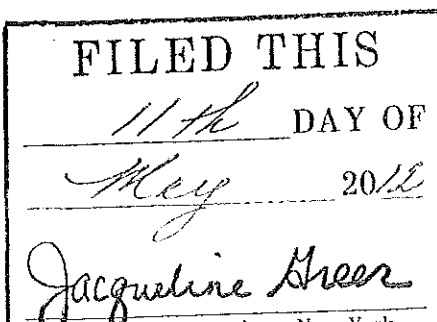 FILED THIS
11th DAY OF
May 2012
Jacqueline Greer
New York